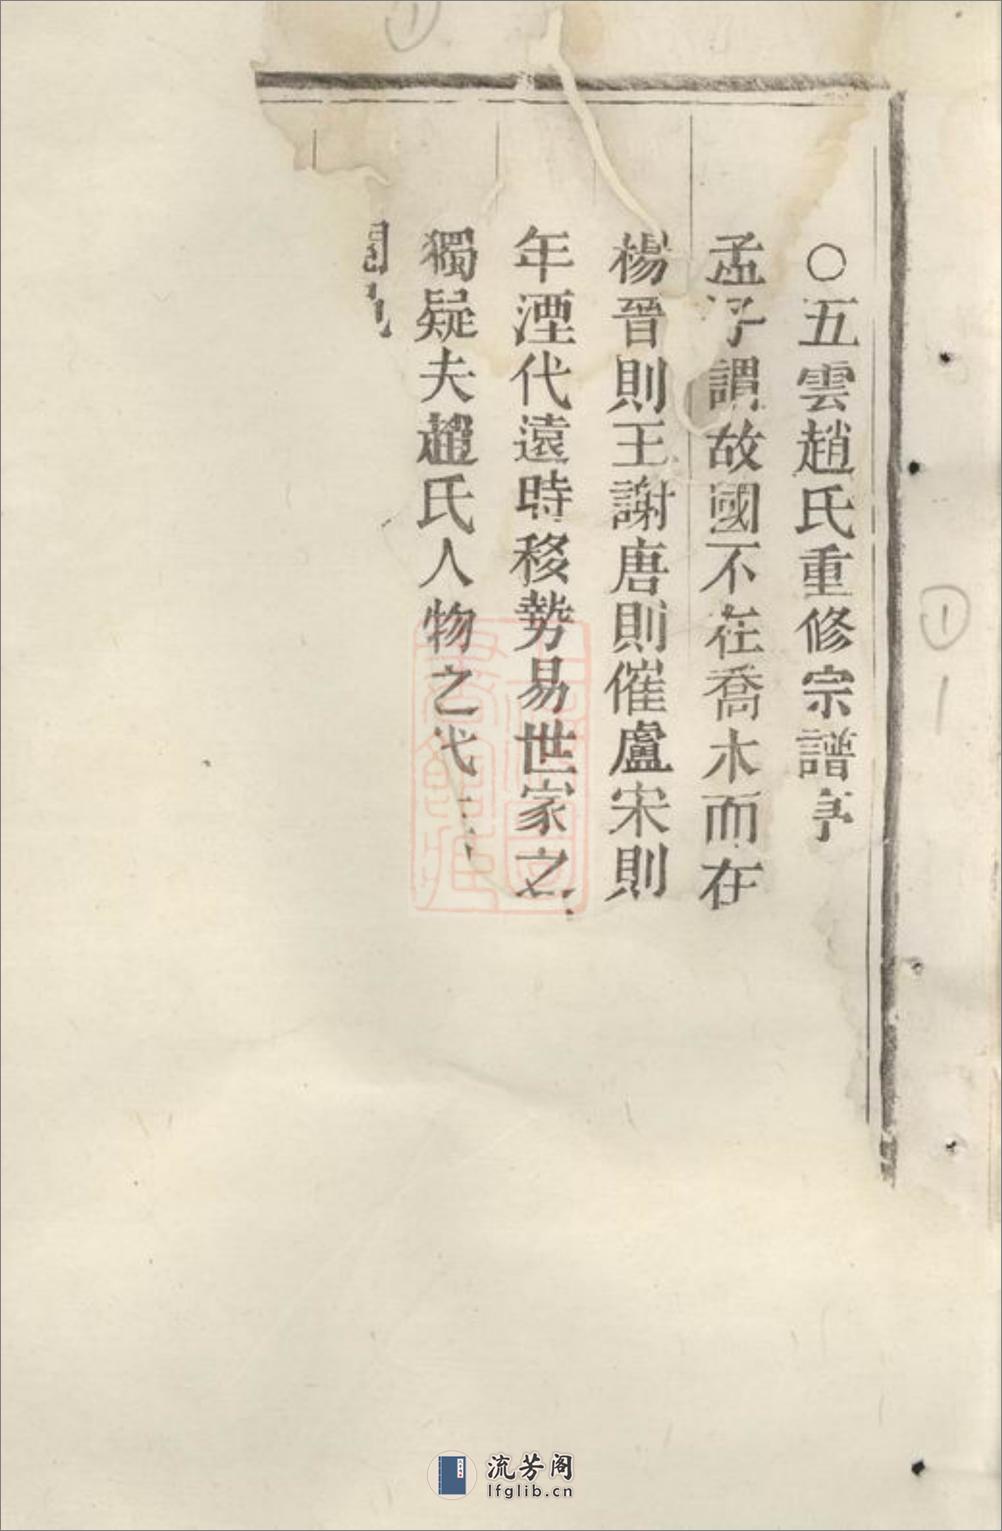 ○五雲趙氏重修宗譜序
孟子謂故國不在喬木而在
楊晉則王謝唐則催盧宋則
年湮代遠時移勢易世家之
獨疑夫趙氏人物之代
流芳阁
lfglib.cn